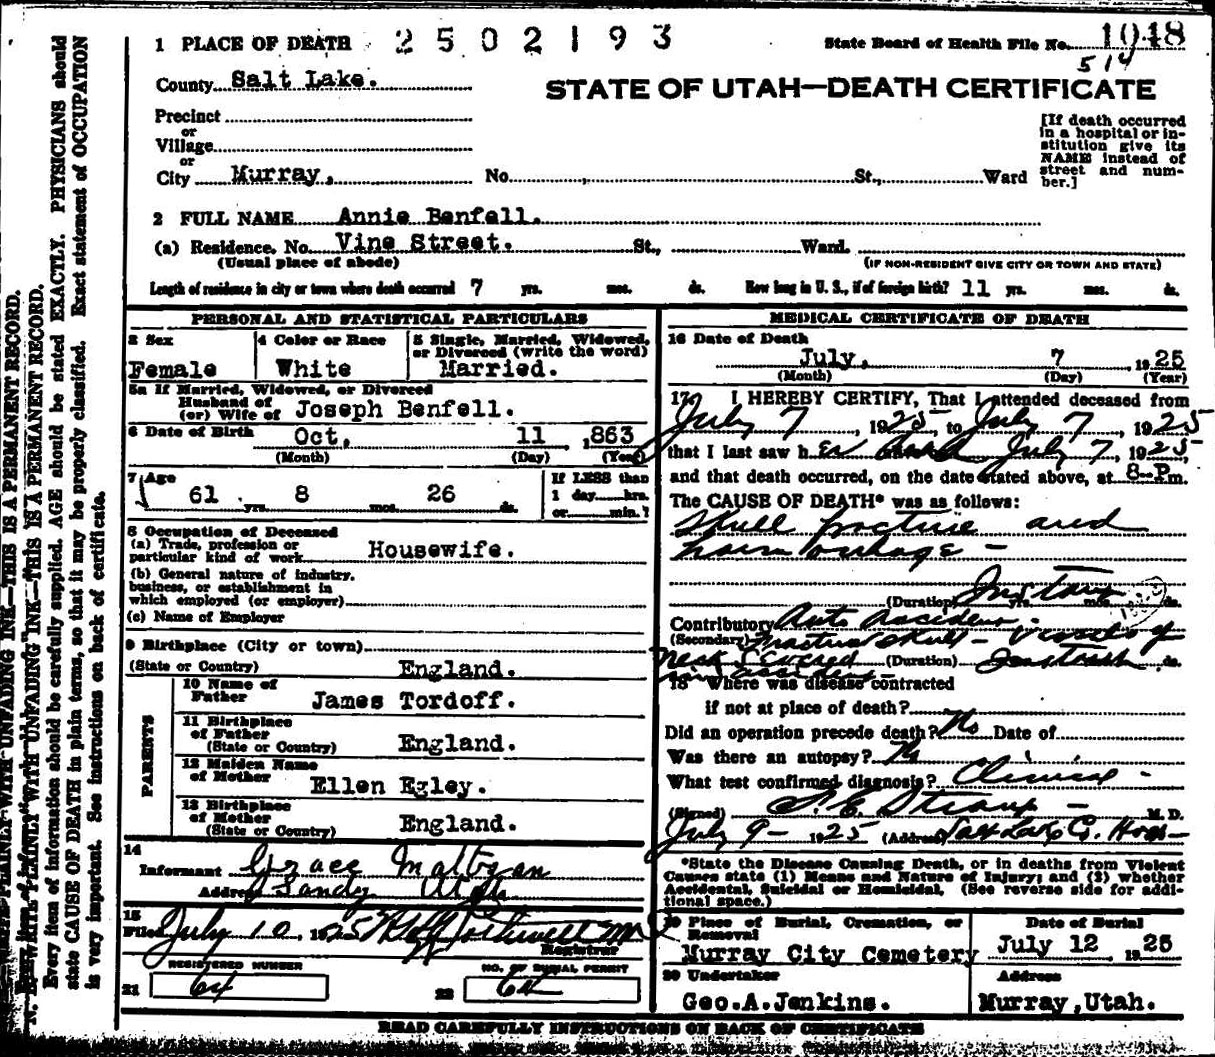 1 PLACE OF DEATH 2502193
State Board of Health File No. 1048
514
County Salt Lake.
STATE OF UTAH—DEATH CERTIFICATE
Precinct
or
Village
or
City Murray, No. , St., Ward
[If death occurred
in a hospital or in-
stitution give its
NAME instead of
street and num-
ber.]
2 FULL NAME Annie Benfell.
(a) Residence, No. Vine Street. St., Ward.
(Usual place of abode) (IF NON-RESIDENT GIVE CITY OR TOWN AND STATE)
Length of residence in city or town where death occurred 7 yrs. mos. ds. How long in U. S., if of foreign birth? 11 yrs. mos. ds.
PERSONAL AND STATISTICAL PARTICULARS
3 Sex
Female
4 Color or Race
White
5 Single, Married, Widowed,
or Divorced (write the word)
Married.
5a If Married, Widowed, or Divorced
Husband of
(or) Wife of Joseph Benfell.
6 Date of Birth Oct, 11 ,863
(Month) (Day) (Year)
7 Age
61 yrs. 8 mos. 26 ds.
If LESS than
1 day hrs.
or min.?
8 Occupation of Deceased
(a) Trade, profession or
particular kind of work Housewife.
(b) General nature of industry,
business, or establishment in
which employed (or employer)
(c) Name of Employer
9 Birthplace (City or town)
(State or Country) England.
PARENTS
10 Name of
Father James Tordoff.
11 Birthplace
of Father
(State or Country) England.
12 Maiden Name
of Mother Ellen Egley.
13 Birthplace
of Mother
(State or Country) England.
14
Informant Grace
Address Sandy Utah
15
Filed July 10 1925
Registrar
REGISTERED NUMBER
21 64
NO. OF BURIAL PERMIT
22 64
MEDICAL CERTIFICATE OF DEATH
16 Date of Death
July, 7 1925
(Month) (Day) (Year)
17 I HEREBY CERTIFY, That I attended deceased from
July 7, 1925, to July 7, 1925
that I last saw her dead July 7, 1925,
and that death occurred, on the date stated above, at 8-Pm.
The CAUSE OF DEATH* was as follows:
Skull fracture and
(Duration) yrs. mos. ds.
Contributory Auto Accident -
(Secondary) Fracture Skull - Vessels of
neck Severed (Duration) ds.
18 Where was disease contracted
if not at place of death?
Did an operation precede death? No Date of
Was there an autopsy? No
What test confirmed diagnosis? Clinical -
(Signed) M. D.
July 9- 1925 (Address) Salt Lake
*State the Disease Causing Death, or in deaths from Violent
Causes state (1) Means and Nature of Injury; and (2) whether
Accidental, Suicidal or Homicidal. (See reverse side for addi-
tional space.)
19 Place of Burial, Cremation, or
Removal
Murray City Cemetery
Date of Burial
July 12 1925
20 Undertaker
Geo.A.Jenkins.
Address
Murray,Utah.
READ CAREFULLY INSTRUCTIONS ON BACK OF CERTIFICATE
WRITE PLAINLY WITH UNFADING INK—THIS IS A PERMANENT RECORD.
Every item of information should be carefully supplied. AGE should be stated EXACTLY. PHYSICIANS should
state CAUSE OF DEATH in plain terms, so that it may be properly classified. Exact statement of OCCUPATION
is very important. See instructions on back of certificate.